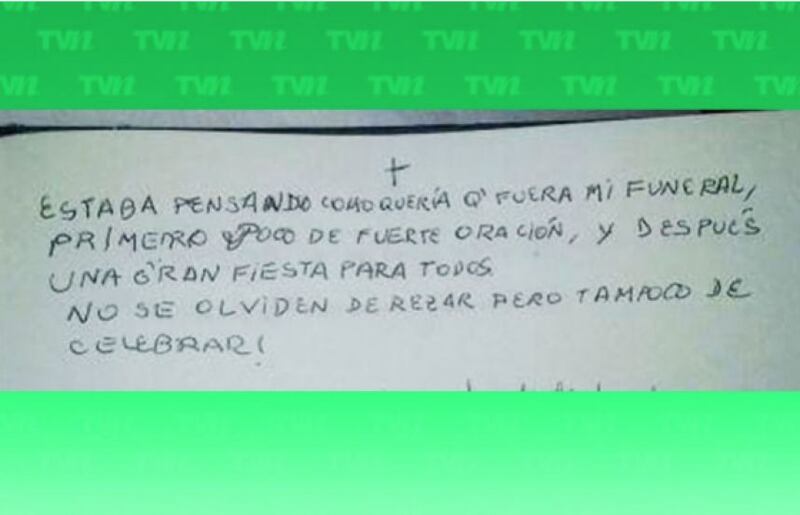 TVN TVN TVN TVN TVN TVN TVN TVN
TVN TVN TVN TVN TVN TVN TVN TVN TVN
ESTABA PENSANDO COMO QUERÍA Q' FUERA MI FUNERAL,
PRIMERO POCO DE FUERTE ORACIÓN, Y DESPUÉS
UNA GRAN FIESTA PARA TODOS.
NO SE OLVIDEN DE REZAR PERO TAMPOCO DE
CELEBRAR!